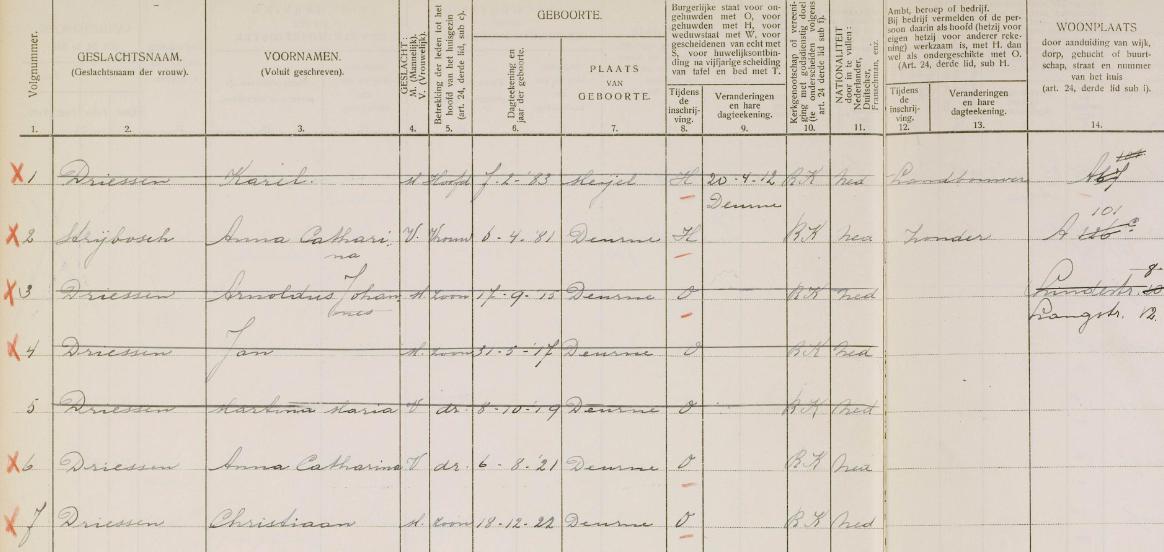 Volgnummer.
1.
GESLACHTSNAAM.
(Geslachtsnaam der vrouw).
2.
VOORNAMEN.
(Voluit geschreven).
3.
GESLACHT:
M. (Mannelijk).
V. (Vrouwelijk).
4.
Betrekking der leden tot het
hoofd van het huisgezin
(art. 24, derde lid, sub c).
5.
GEBOORTE.
Dagteekening en
jaar der geboorte.
6.
PLAATS
VAN
GEBOORTE.
7.
Burgerlijke staat voor on-
gehuwden met O, voor
gehuwden met H, voor
weduwstaat met W, voor
gescheidenen van echt met
S, voor huwelijksontbin-
ding na vijfjarige scheiding
van tafel en bed met T.
Tijdens
de
inschrij-
ving.
8.
Veranderingen
en hare
dagteekening.
9.
Kerkgenootschap of vereeni-
ging met godsdienstig doel
(te onderscheiden volgens
art. 24 derde lid sub f).
10.
NATIONALITEIT
door in te vullen:
Nederlander,
Duitscher,
Franschman, enz.
11.
Ambt, beroep of bedrijf.
Bij bedrijf vermelden of de per-
soon daarin als hoofd (hetzij voor
eigen hetzij voor anderer reke-
ning) werkzaam is, met H. dan
wel als ondergeschikte met O.
(Art. 24, derde lid, sub H.
Tijdens
de
inschrij-
ving.
12.
Veranderingen
en hare
dagteekening.
13.
WOONPLAATS
door aanduiding van wijk,
dorp, gehucht of buurt-
schap, straat en nummer
van het huis
(art. 24, derde lid sub i).
14.
1 Driessen Karel. M Hoofd 7-2-'83 Meijel H 20-4-12 RK Ned Landbouwer
Deurne
2 Strijbosch Anna Cathari V. Vrouw 6-4-'81 Deurne H RK Ned zonder A 101
na
3 Driessen Arnoldus Johan M. zoon 17-9-15 Deurne O RK Ned
nes
Langstr. 12.
4 Driessen Jan M. zoon 31-5-'17 Deurne O RK Ned
5 Driessen Martina Maria V dr. 8-10-'19 Deurne O RK Ned
6 Driessen Anna Catharina V dr. 6-8-'21 Deurne O RK Ned
7 Driessen Christiaan M. zoon 18-12-22 Deurne O RK Ned